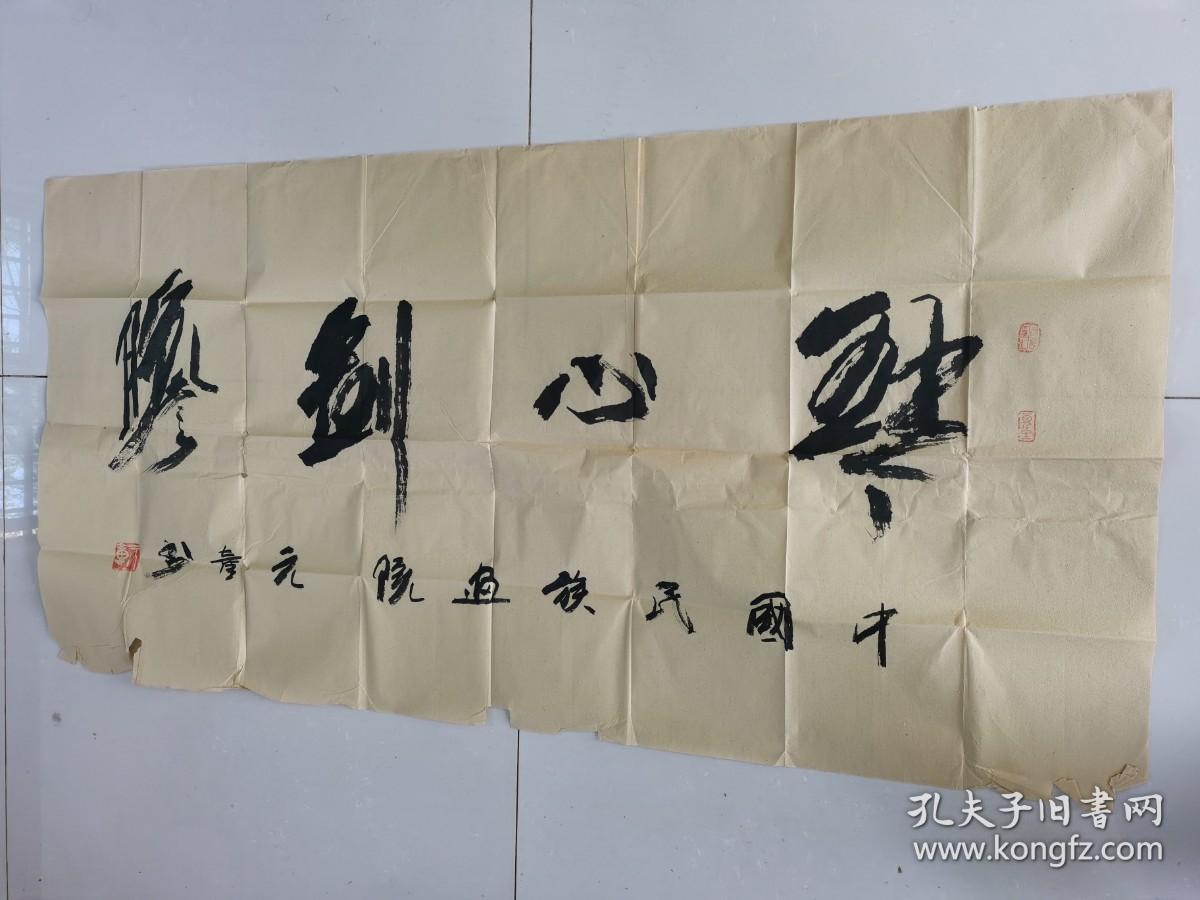 琴心劍膽
中國民族画院元章書
孔夫子旧書网
www.kongfz.com